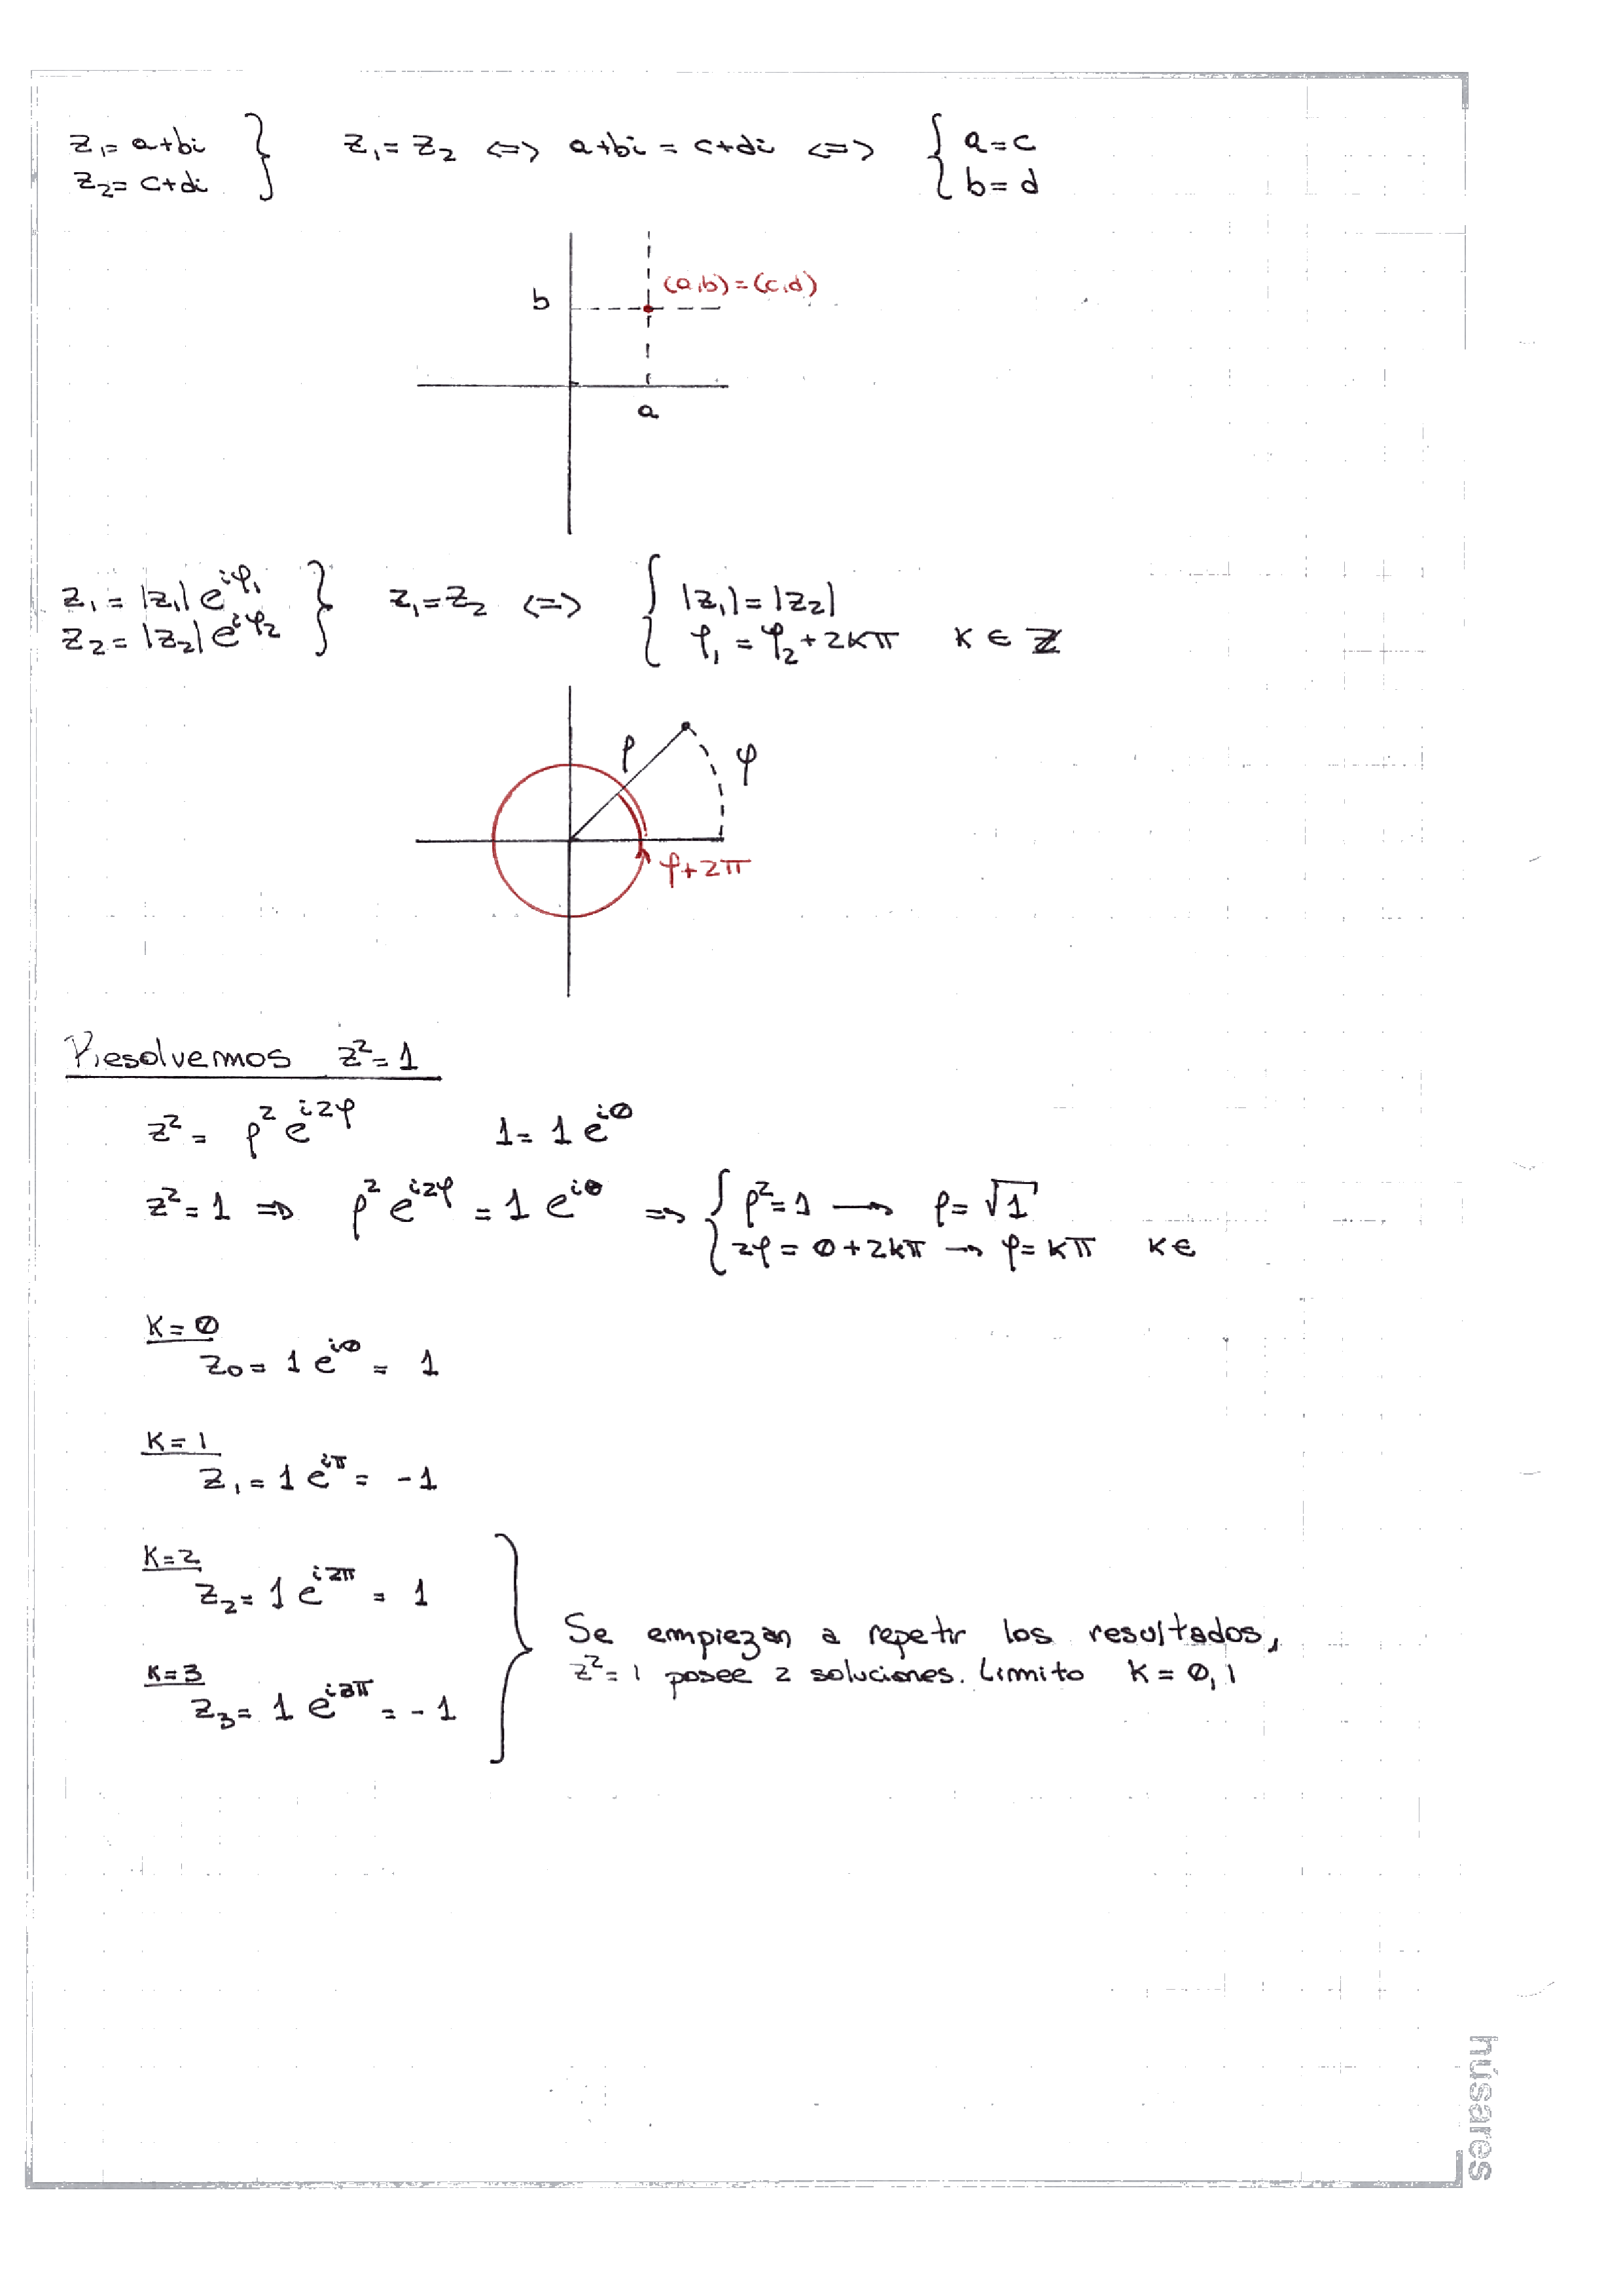 z₁= a+bi
z₂= c+di } z₁= z₂ <=> a+bi = c+di <=> { a=c
b=d
(a,b)=(c,d)
b
a
z₁ = |z₁| e^{iφ₁}
z₂ = |z₂| e^{iφ₂} } z₁=z₂ <=> { |z₁|=|z₂|
φ₁ = φ₂+2kπ k ∈ ℤ
ρ φ
φ+2π
Resolvemos z²=1
z² = ρ² e^{i2φ} 1= 1 e^{i0}
z²=1 => ρ² e^{i2φ} = 1 e^{i0} => { ρ²=1 → ρ= √1
2φ = 0+2kπ → φ= kπ k∈
K=0
z₀= 1 e^{i0} = 1
K=1
z₁= 1 e^{iπ} = -1
K=2
z₂= 1 e^{i2π} = 1
K=3
z₃= 1 e^{i3π} = -1
Se empiezan a repetir los resultados,
z²=1 posee 2 soluciones. Limito k=0,1
húsares